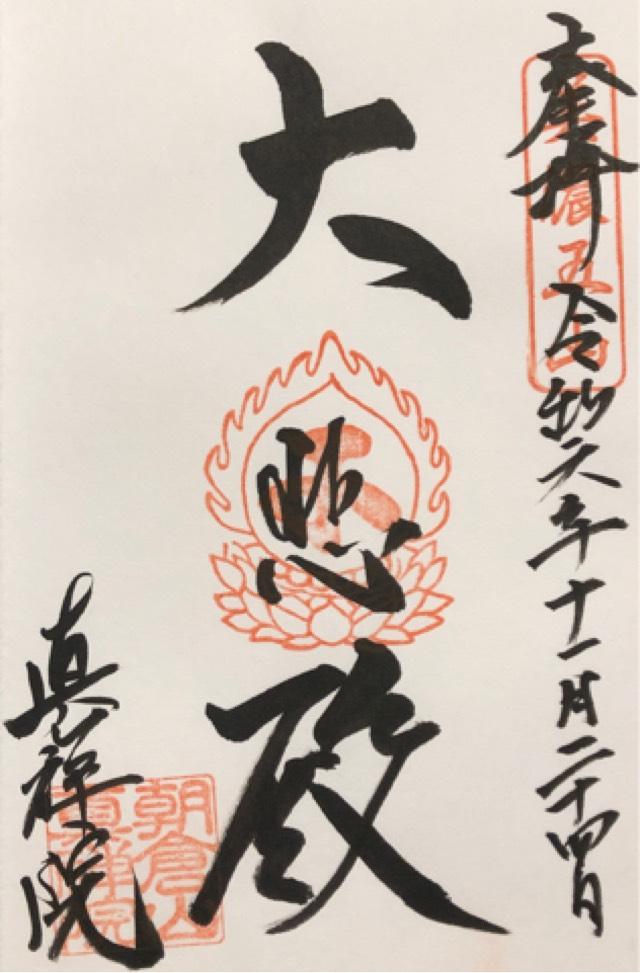 奉拝 令和六年十一月二十四日
大悲殿
真禅院
朝倉山